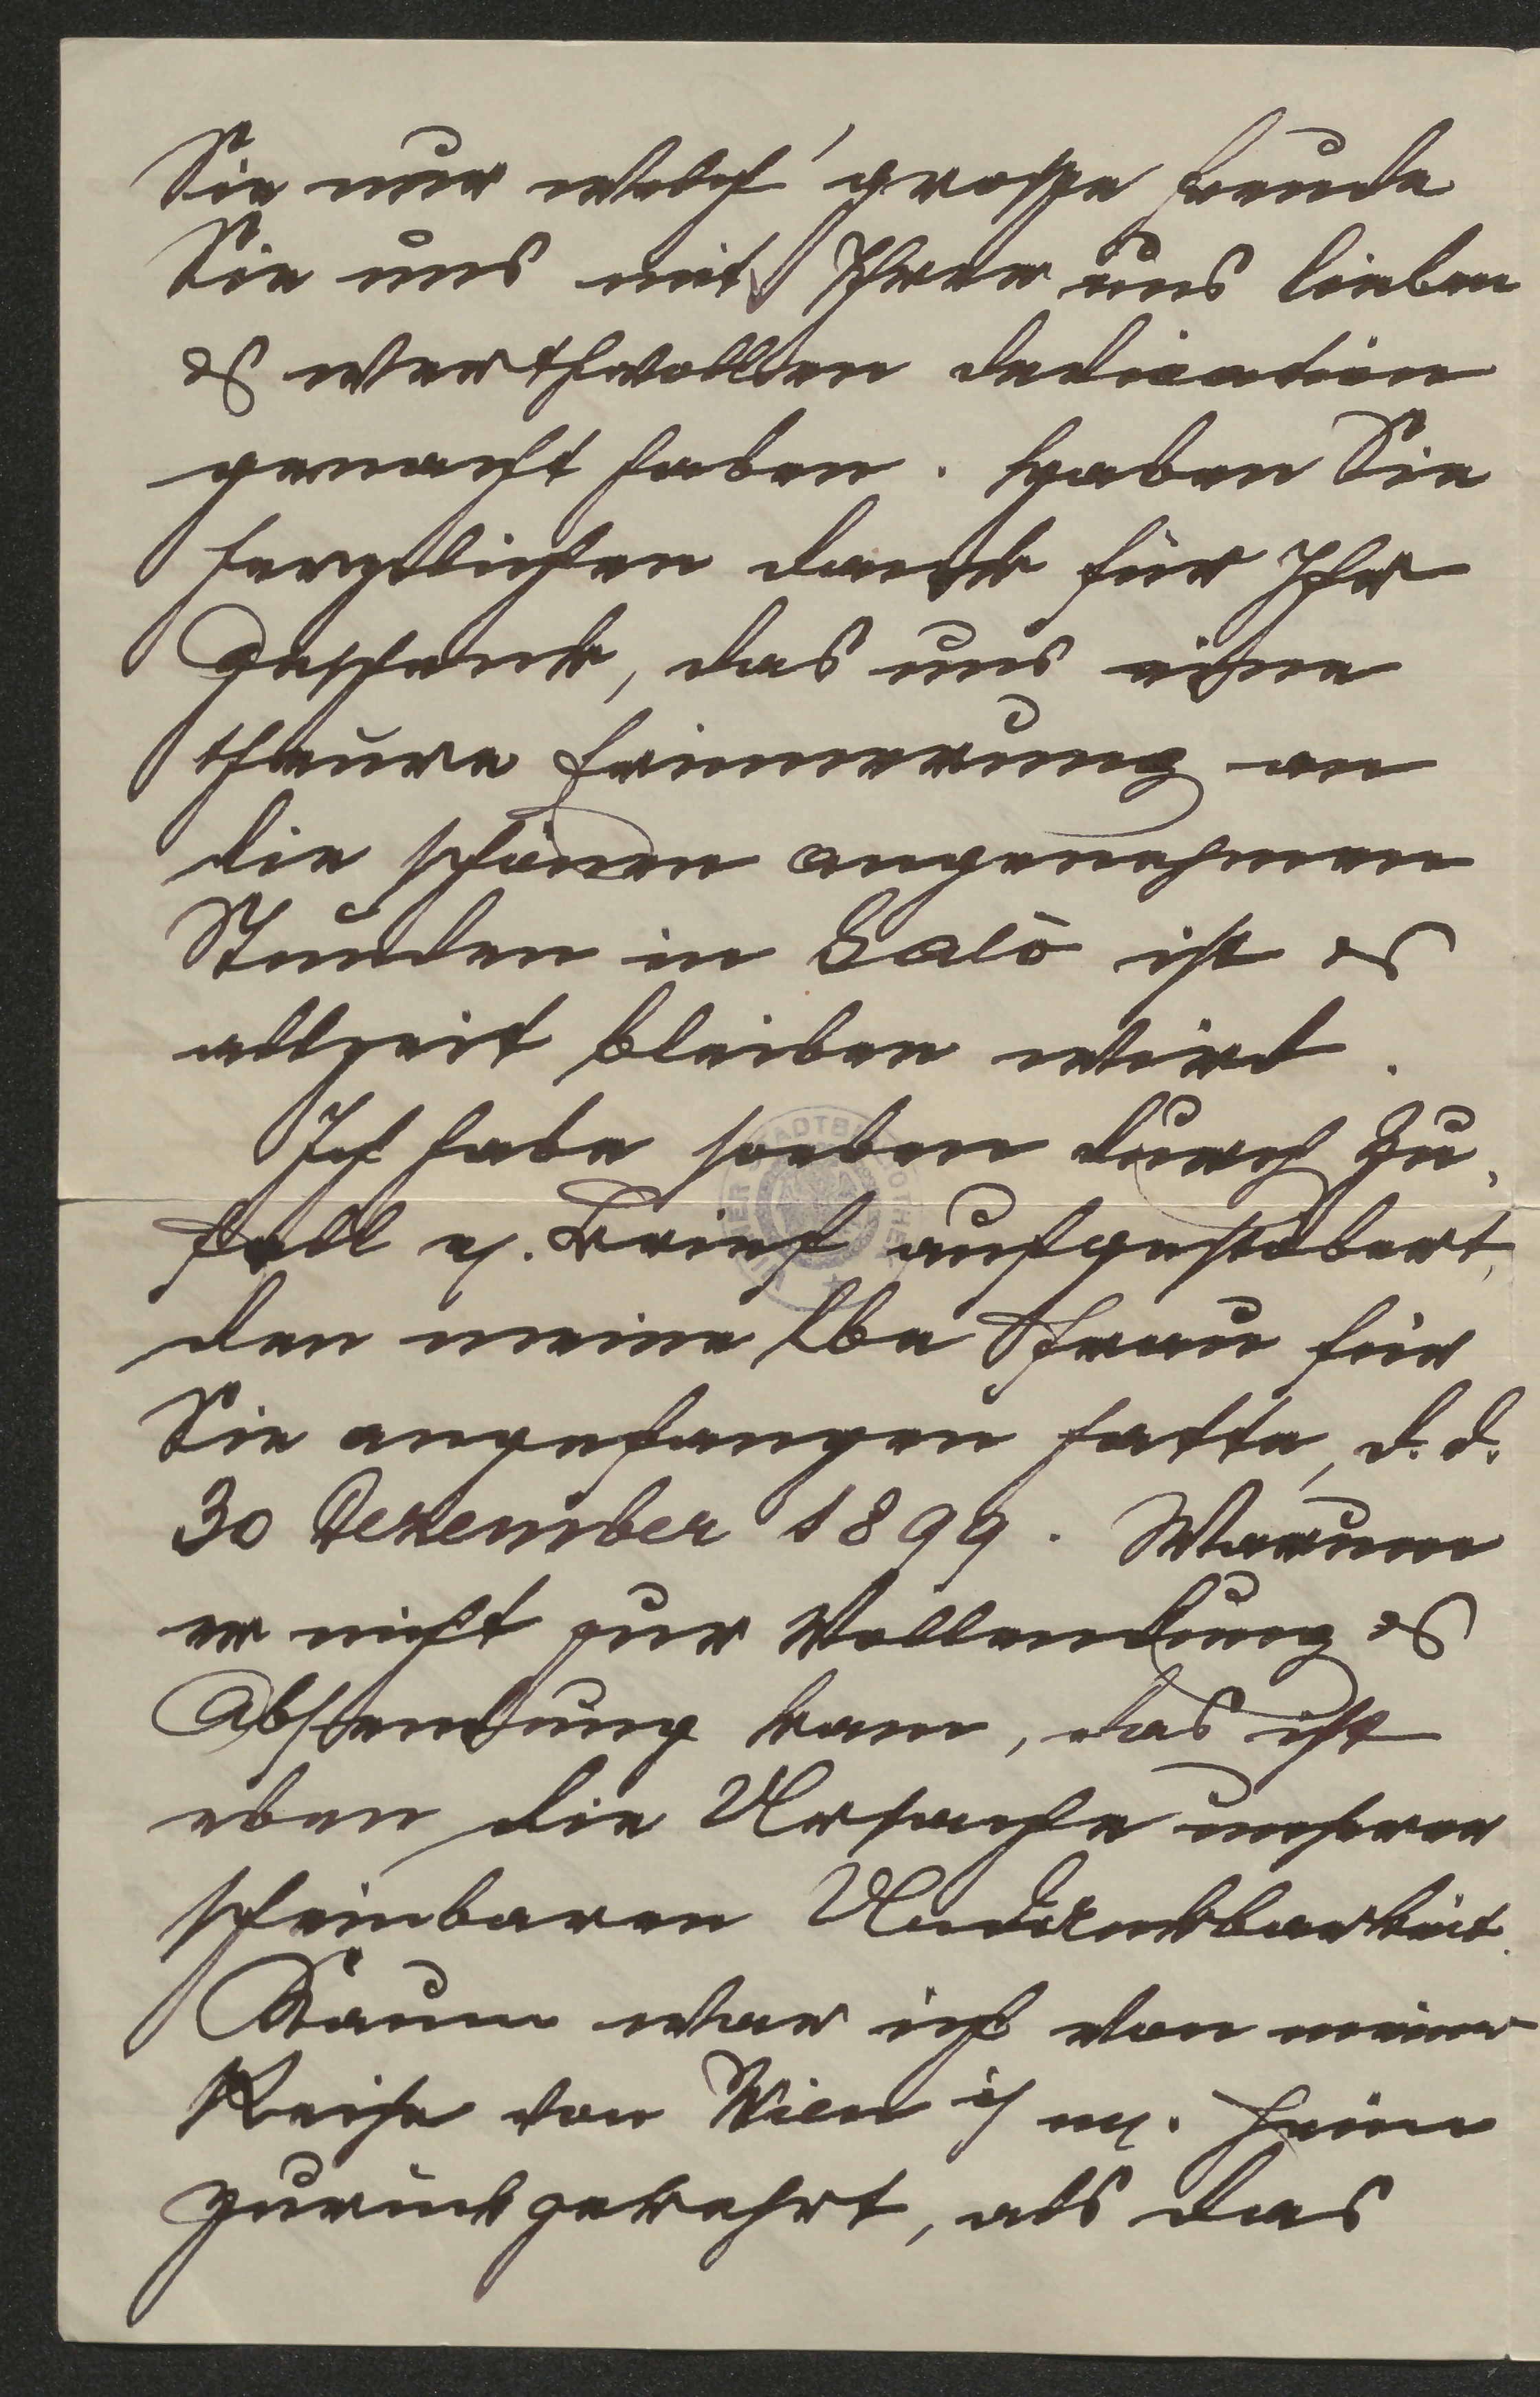 Sie nur welch' große Freude
Sie uns mit Ihrer uns lieben
& werthvollen Dedication
gemacht haben. Haben Sie
herzlichen Dank für Ihr
Geschenk, das uns eine
theure Erinnerung an
die schönen angenehmen
Stunden in Salò ist &
allzeit bleiben wird.
Ich habe soeben durch Zu-
fall e. Brief aufgestöbert,
den meine lbe Frau für
Sie angefangen hatte, d. d.
30 Dezember 1899. Warum
er nicht zur Vollendung &
Absendung kam, das ist
eben die Ursache unserer
scheinbaren Undankbarkeit.
Kaum war ich von meiner
Reise von Wien in m. Heim
zurückgekehrt, als das
WIENER STADTBIBLIOTHEK